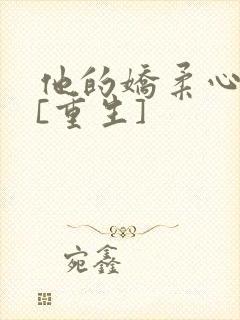 他的嬌柔心
[重生]
宛鑫